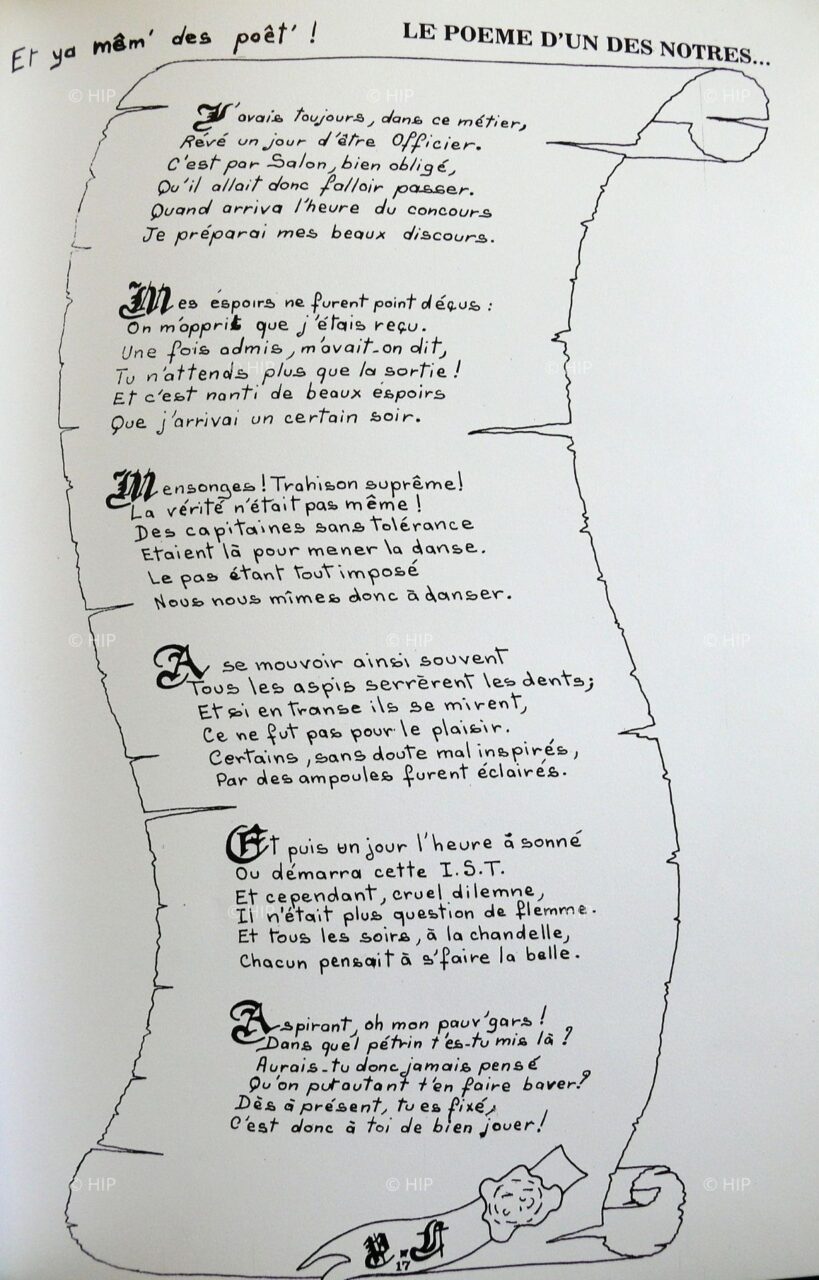 Et ya mêm' des poêt' !
LE POEME D'UN DES NOTRES...
© HIP © HIP
J'avais toujours, dans ce métier,
Rêvé un jour d'être Officier.
C'est par Salon, bien obligé,
Qu'il allait donc falloir passer.
Quand arriva l'heure du concours
Je préparai mes beaux discours.
Mes éspoirs ne furent point déçus :
On m'apprit que j'étais reçu.
Une fois admis, m'avait-on dit,
Tu n'attends plus que la sortie !
Et c'est nanti de beaux éspoirs
Que j'arrivai un certain soir.
© HIP
Mensonges ! Trahison suprême !
La vérité n'était pas même !
Des capitaines sans tolérance
Etaient là pour mener la danse.
Le pas étant tout imposé
Nous nous mîmes donc à danser.
© HIP © HIP © HIP
A se mouvoir ainsi souvent
Tous les aspis serrèrent les dents ;
Et si en transe ils se mirent,
Ce ne fut pas pour le plaisir.
Certains, sans doute mal inspirés,
Par des ampoules furent éclairés.
Et puis un jour l'heure à sonné
Ou démarra cette I.S.T.
Et cependant, cruel dilemne,
Il n'était plus question de flemme.
Et tous les soirs, à la chandelle,
Chacun pensait à s'faire la belle.
Aspirant, oh mon pauv'gars !
Dans quel pétrin t'es-tu mis là ?
Aurais-tu donc jamais pensé
Qu'on put autant t'en faire baver ?
Dès à présent, tu es fixé,
C'est donc à toi de bien jouer !
© HIP © HIP © HIP
17